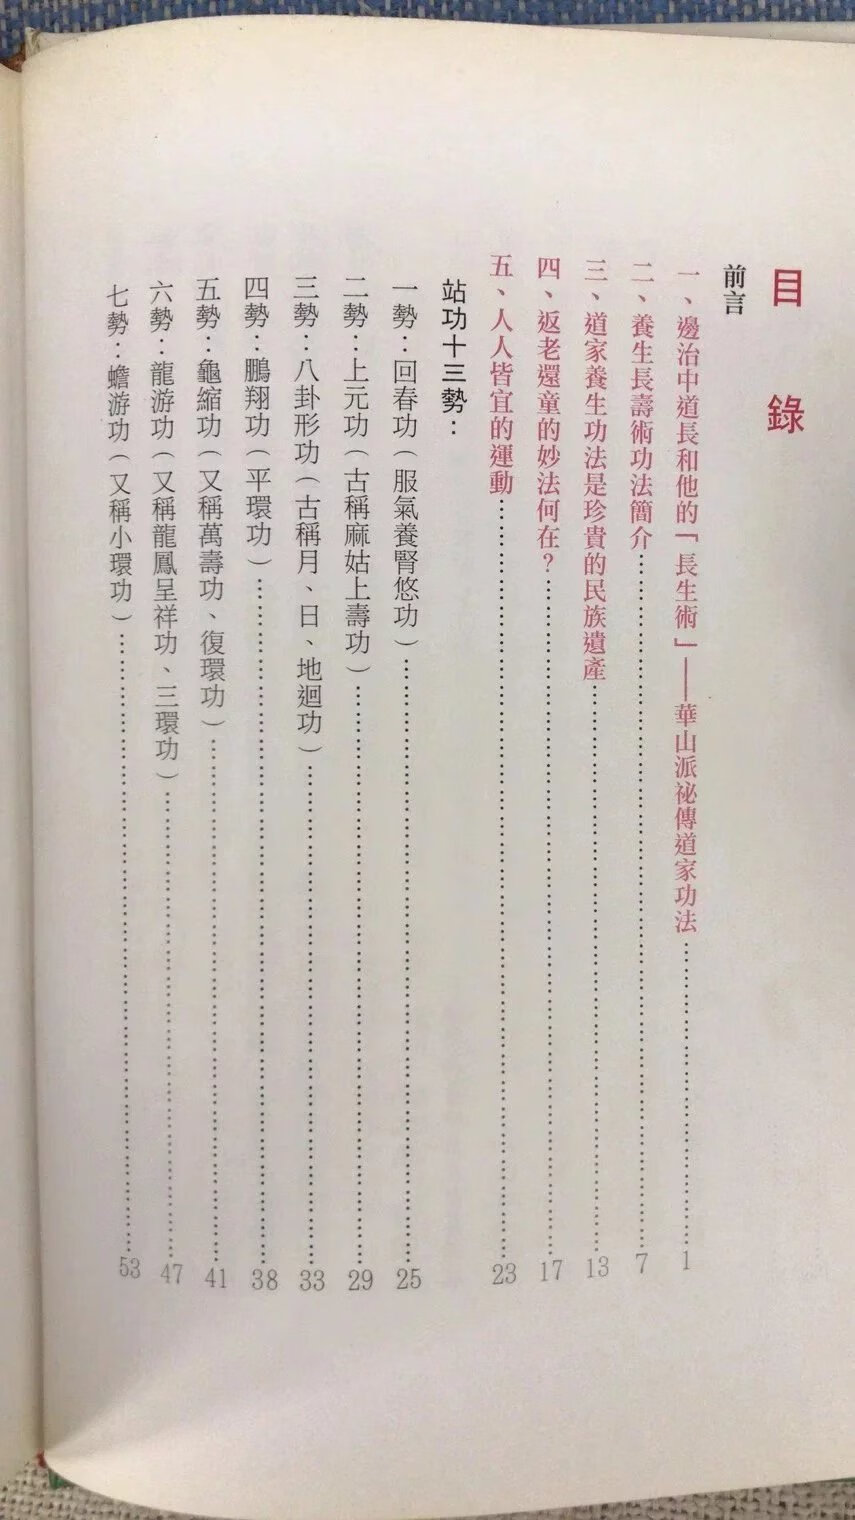 目錄
前言
一、邊治中道長和他的「長生術」——華山派祕傳道家功法……1
二、養生長壽術功法簡介……7
三、道家養生功法是珍貴的民族遺產……13
四、返老還童的妙法何在?……17
五、人人皆宜的運動……23
站功十三勢：
一勢：回春功(服氣養腎悠功)……25
二勢：上元功(古稱麻姑上壽功)……29
三勢：八卦形功(古稱月、日、地迴功)……33
四勢：鵬翔功(平環功)……38
五勢：龜縮功(又稱萬壽功、復環功)……41
六勢：龍游功(又稱龍鳳呈祥功、三環功)……47
七勢：蟾游功(又稱小環功)……53